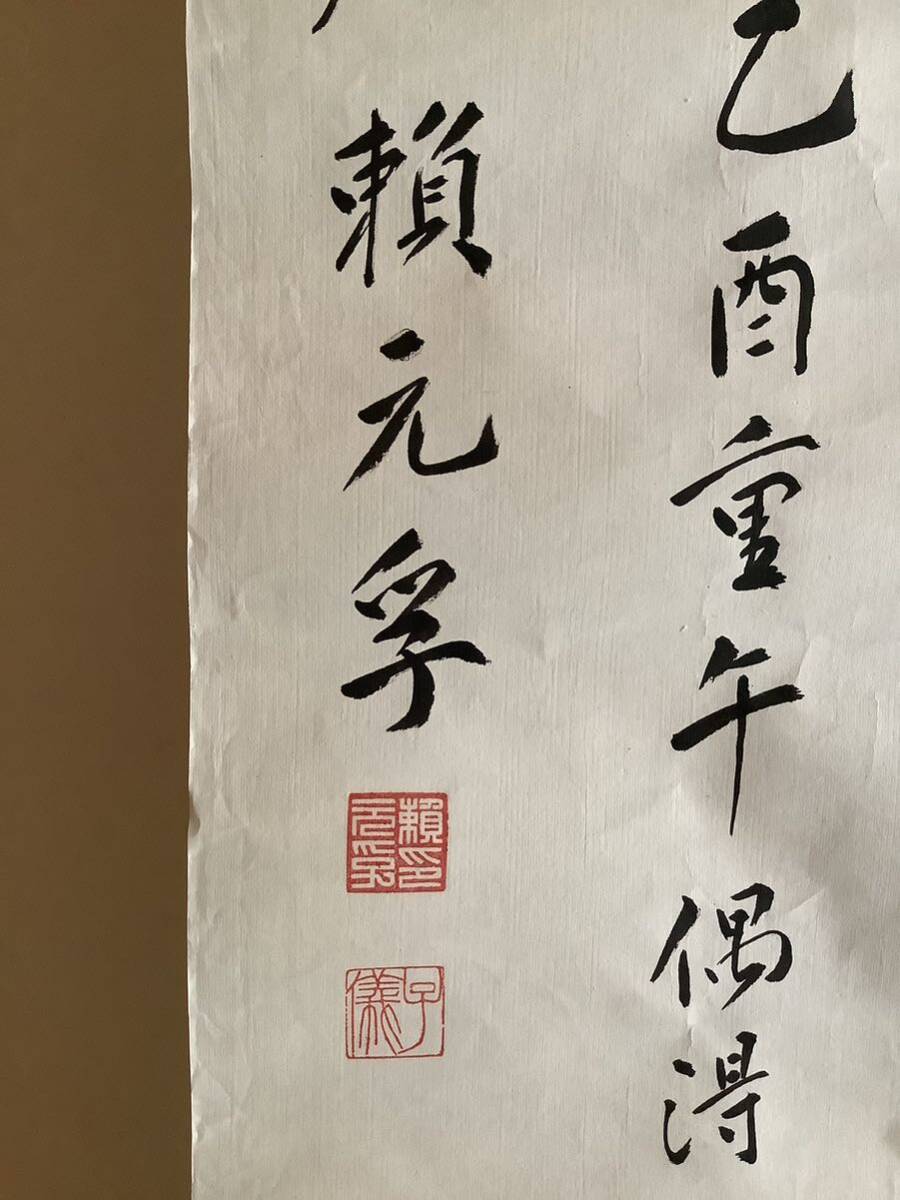 乙酉重午偶得
賴元孚
賴印元孚
子儀